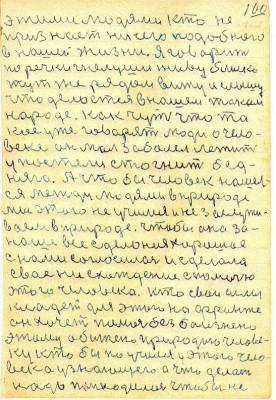 100
этими людями кто не
признает ничего подобного
в нашей жизни. Я говорит
по речки живу близко
тут же рядом вижу и слышу
что делается в нашем таком
народе. Как чуть что та
уже говорят люди о чело-
веке он мол заболел лежит
у постели стогнит бед-
няга. А что бы человек нашел-
ся между людями в природе
мы этого не учимся и не заслужи-
ваем в природе. чтобы она за-
наше все сделоная хорошая
с нами согосилая и сделала
свае нисхождение с помочию
этого человека. Кто свои силы
кладет для этого на фронте
он хочет помоч без болезнено
этому обижено природою челове-
ку кто бы по учился у этого чело-
века узнающего а что делат
надо приходилося чтобы не